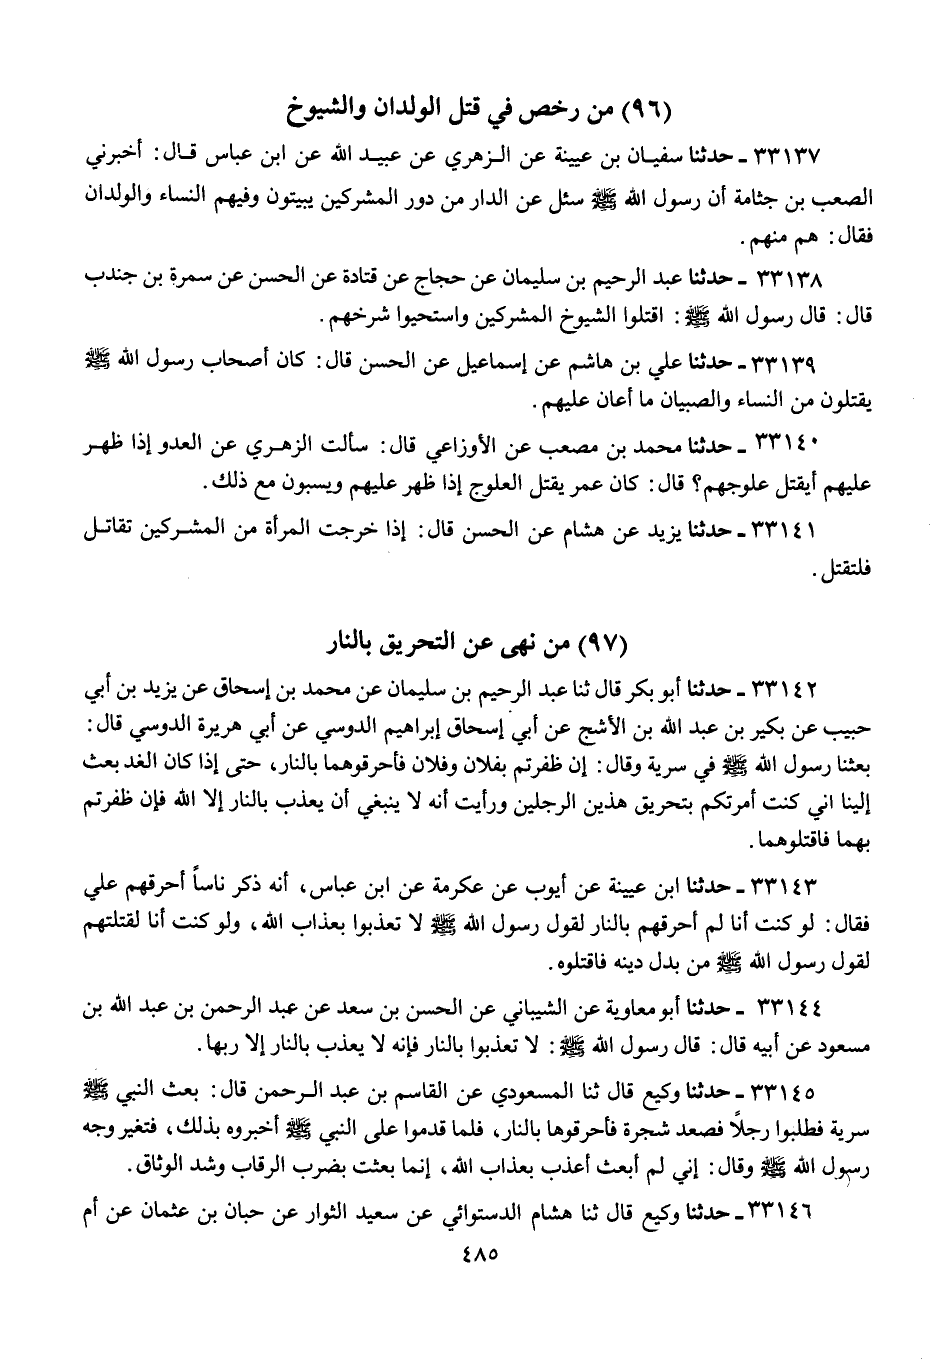 (٩٦) من رخص في قتل الولدان والشيوخ
٣٣١٣٧ ـ حدثنا سفيان بن عيينة عن الزهري عن عبيد الله عن ابن عباس قال: أخبرني
الصعب بن جثامة أن رسول الله ﷺ سئل عن الدار من دور المشركين يبيتون وفيهم النساء والولدان
فقال: هم منهم.
٣٣١٣٨ ـ حدثنا عبد الرحيم بن سليمان عن حجاج عن قتادة عن الحسن عن سمرة بن جندب
قال: قال رسول الله ﷺ: اقتلوا الشيوخ المشركين واستحيوا شرخهم.
٣٣١٣٩ ـ حدثنا علي بن هاشم عن إسماعيل عن الحسن قال: كان أصحاب رسول الله ﷺ
يقتلون من النساء والصبيان ما أعان عليهم.
٣٣١٤٠ ـ حدثنا محمد بن مصعب عن الأوزاعي قال: سألت الزهري عن العدو إذا ظهر
عليهم أيقتل علوجهم؟ قال: كان عمر يقتل العلوج إذا ظهر عليهم ويسبون مع ذلك.
٣٣١٤١ ـ حدثنا يزيد عن هشام عن الحسن قال: إذا خرجت المرأة من المشركين تقاتل
فلتقتل.
(٩٧) من نهى عن التحريق بالنار
٣٣١٤٢ ـ حدثنا أبو بكر قال ثنا عبد الرحيم بن سليمان عن محمد بن إسحاق عن يزيد بن أبي
حبيب عن بكير بن عبد الله بن الأشج عن أبي إسحاق إبراهيم الدوسي عن أبي هريرة الدوسي قال:
بعثنا رسول الله ﷺ في سرية وقال: إن ظفرتم بفلان وفلان فأحرقوهما بالنار، حتى إذا كان الغد بعث
إلينا اني كنت أمرتكم بتحريق هذين الرجلين ورأيت أنه لا ينبغي أن يعذب بالنار إلا الله فإن ظفرتم
بهما فاقتلوهما.
٣٣١٤٣ ـ حدثنا ابن عيينة عن أيوب عن عكرمة عن ابن عباس، أنه ذكر ناساً أحرقهم علي
فقال: لو كنت أنا لم أحرقهم بالنار لقول رسول الله ﷺ لا تعذبوا بعذاب الله، ولو كنت أنا لقتلتهم
لقول رسول الله ﷺ من بدل دينه فاقتلوه.
٣٣١٤٤ ـ حدثنا أبو معاوية عن الشيباني عن الحسن بن سعد عن عبد الرحمن بن عبد الله بن
مسعود عن أبيه قال: قال رسول الله ﷺ: لا تعذبوا بالنار فإنه لا يعذب بالنار إلا ربها.
٣٣١٤٥ ـ حدثنا وكيع قال ثنا المسعودي عن القاسم بن عبد الرحمن قال: بعث النبي ﷺ
سرية فطلبوا رجلاً فصعد شجرة فأحرقوها بالنار، فلما قدموا على النبي ﷺ أخبروه بذلك، فتغير وجه
رسول الله ﷺ وقال: إني لم أبعث أعذب بعذاب الله، إنما بعثت بضرب الرقاب وشد الوثاق.
٣٣١٤٦ ـ حدثنا وكيع قال ثنا هشام الدستوائي عن سعيد الثوار عن حبان بن عثمان عن أم
٤٨٥